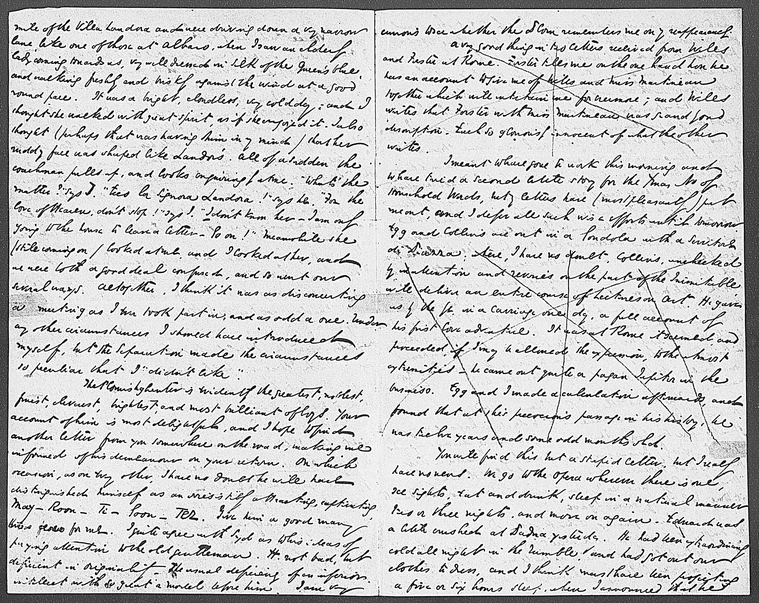 mile of the Villa Landora and were driving down a very narrow
lane like one of those at Albaro, when I saw an elderly
lady coming towards us, very well dressed in silk of the Queen's blue,
and walking freshly and briskly against the wind at a good
round pace. It was a bright, cloudless, very cold day; and I
thought she walked with great spirit as if she enjoyed it. I also
thought (perhaps that was having him in my mind) that her
ruddy face was shaped like Landor's. All of a sudden the
coachman pulls up, and looks enquiringly at me. "What's the
matter?" says I. "Ecco la Signora Landora!" says he. "For the
love of Heaven, don't stop!" says I. "I don't know her—I am only
going to the house to leave a letter—Go on!" Meanwhile she
(still coming on) looked at me, and I looked at her, and
we were both a good deal confused, and so went our
several ways. Altogether, I think it was as disconcerting
a meeting as I ever took part in; and as odd a one. Under
any other circumstances I should have introduced
myself, but the separation made the circumstances
so peculiar that "I didn't like."
The Plornishghenter is evidently the greatest, noblest,
finest, cleverest, brightest and most brilliant of boys. Your
account of him is most delightful, and I hope to find
another letter from you somewhere on the road, making me
informed of his demeanour on your return. On which
occasion, as on every other, I have no doubt he will have
distinguished himself as an irresistibly attracting, captivating
May-Roon-Ti-Goon-Ter. Give him a good many
kisses for me. I quite agree with Syd as to his ideas of
paying attention to the old gentleman. It's not bad, but
deficient in originality. The usual deficiency of an inferior
intellect with so great a model before him. I am very
curious to see whether the Plorn remembers me on my reappearance.
a very good thing in two letters received from Wills
and Forster at Rome. Forster tells me on the one hand how he
has an account to give me of Wills and Miss Martineau
together which will entertain me for evermore; and Wills
writes that Forster with Miss Martineau was grand beyond
description. Each so gloriously innocent of what the other
writes.
I meant to have gone to work this morning and
to have tried a second little story for the Xmas No of
Household Words, but letters have (most pleasantly) put
me out, and I defer all such wise efforts until tomorrow
Egg and Collins are out in a Gondola with a Servitore
di Piazza. Where, I have no doubt, Collins, unchecked
by and on the part of the Inimitable
will deliver an entire course of lectures on Art. He gave
us by the by in a carriage one day, a full account of
his first love adventure. It was at Rome it seemed and
proceeded, if I may be allowed the expression, to the utmost
extremities—he came out quite a pagan Jupiter in the
business. Egg and I made a calculation afterwards, and
found that at this precocious passage in his history, he
was twelve years and some odd months old.
You will find this but a stupid letter, but I really
have no news. We go to the opera wherever there is one
see sights, eat and drink, sleep in a natural manner
two or three nights, and move on again. Edward was
a little crushed at Padua yesterday. He had been
cold all night in the rumble and had got out our
clothes to dress, and I think must have been projecting
a five or six hours sleep, when I announced that he